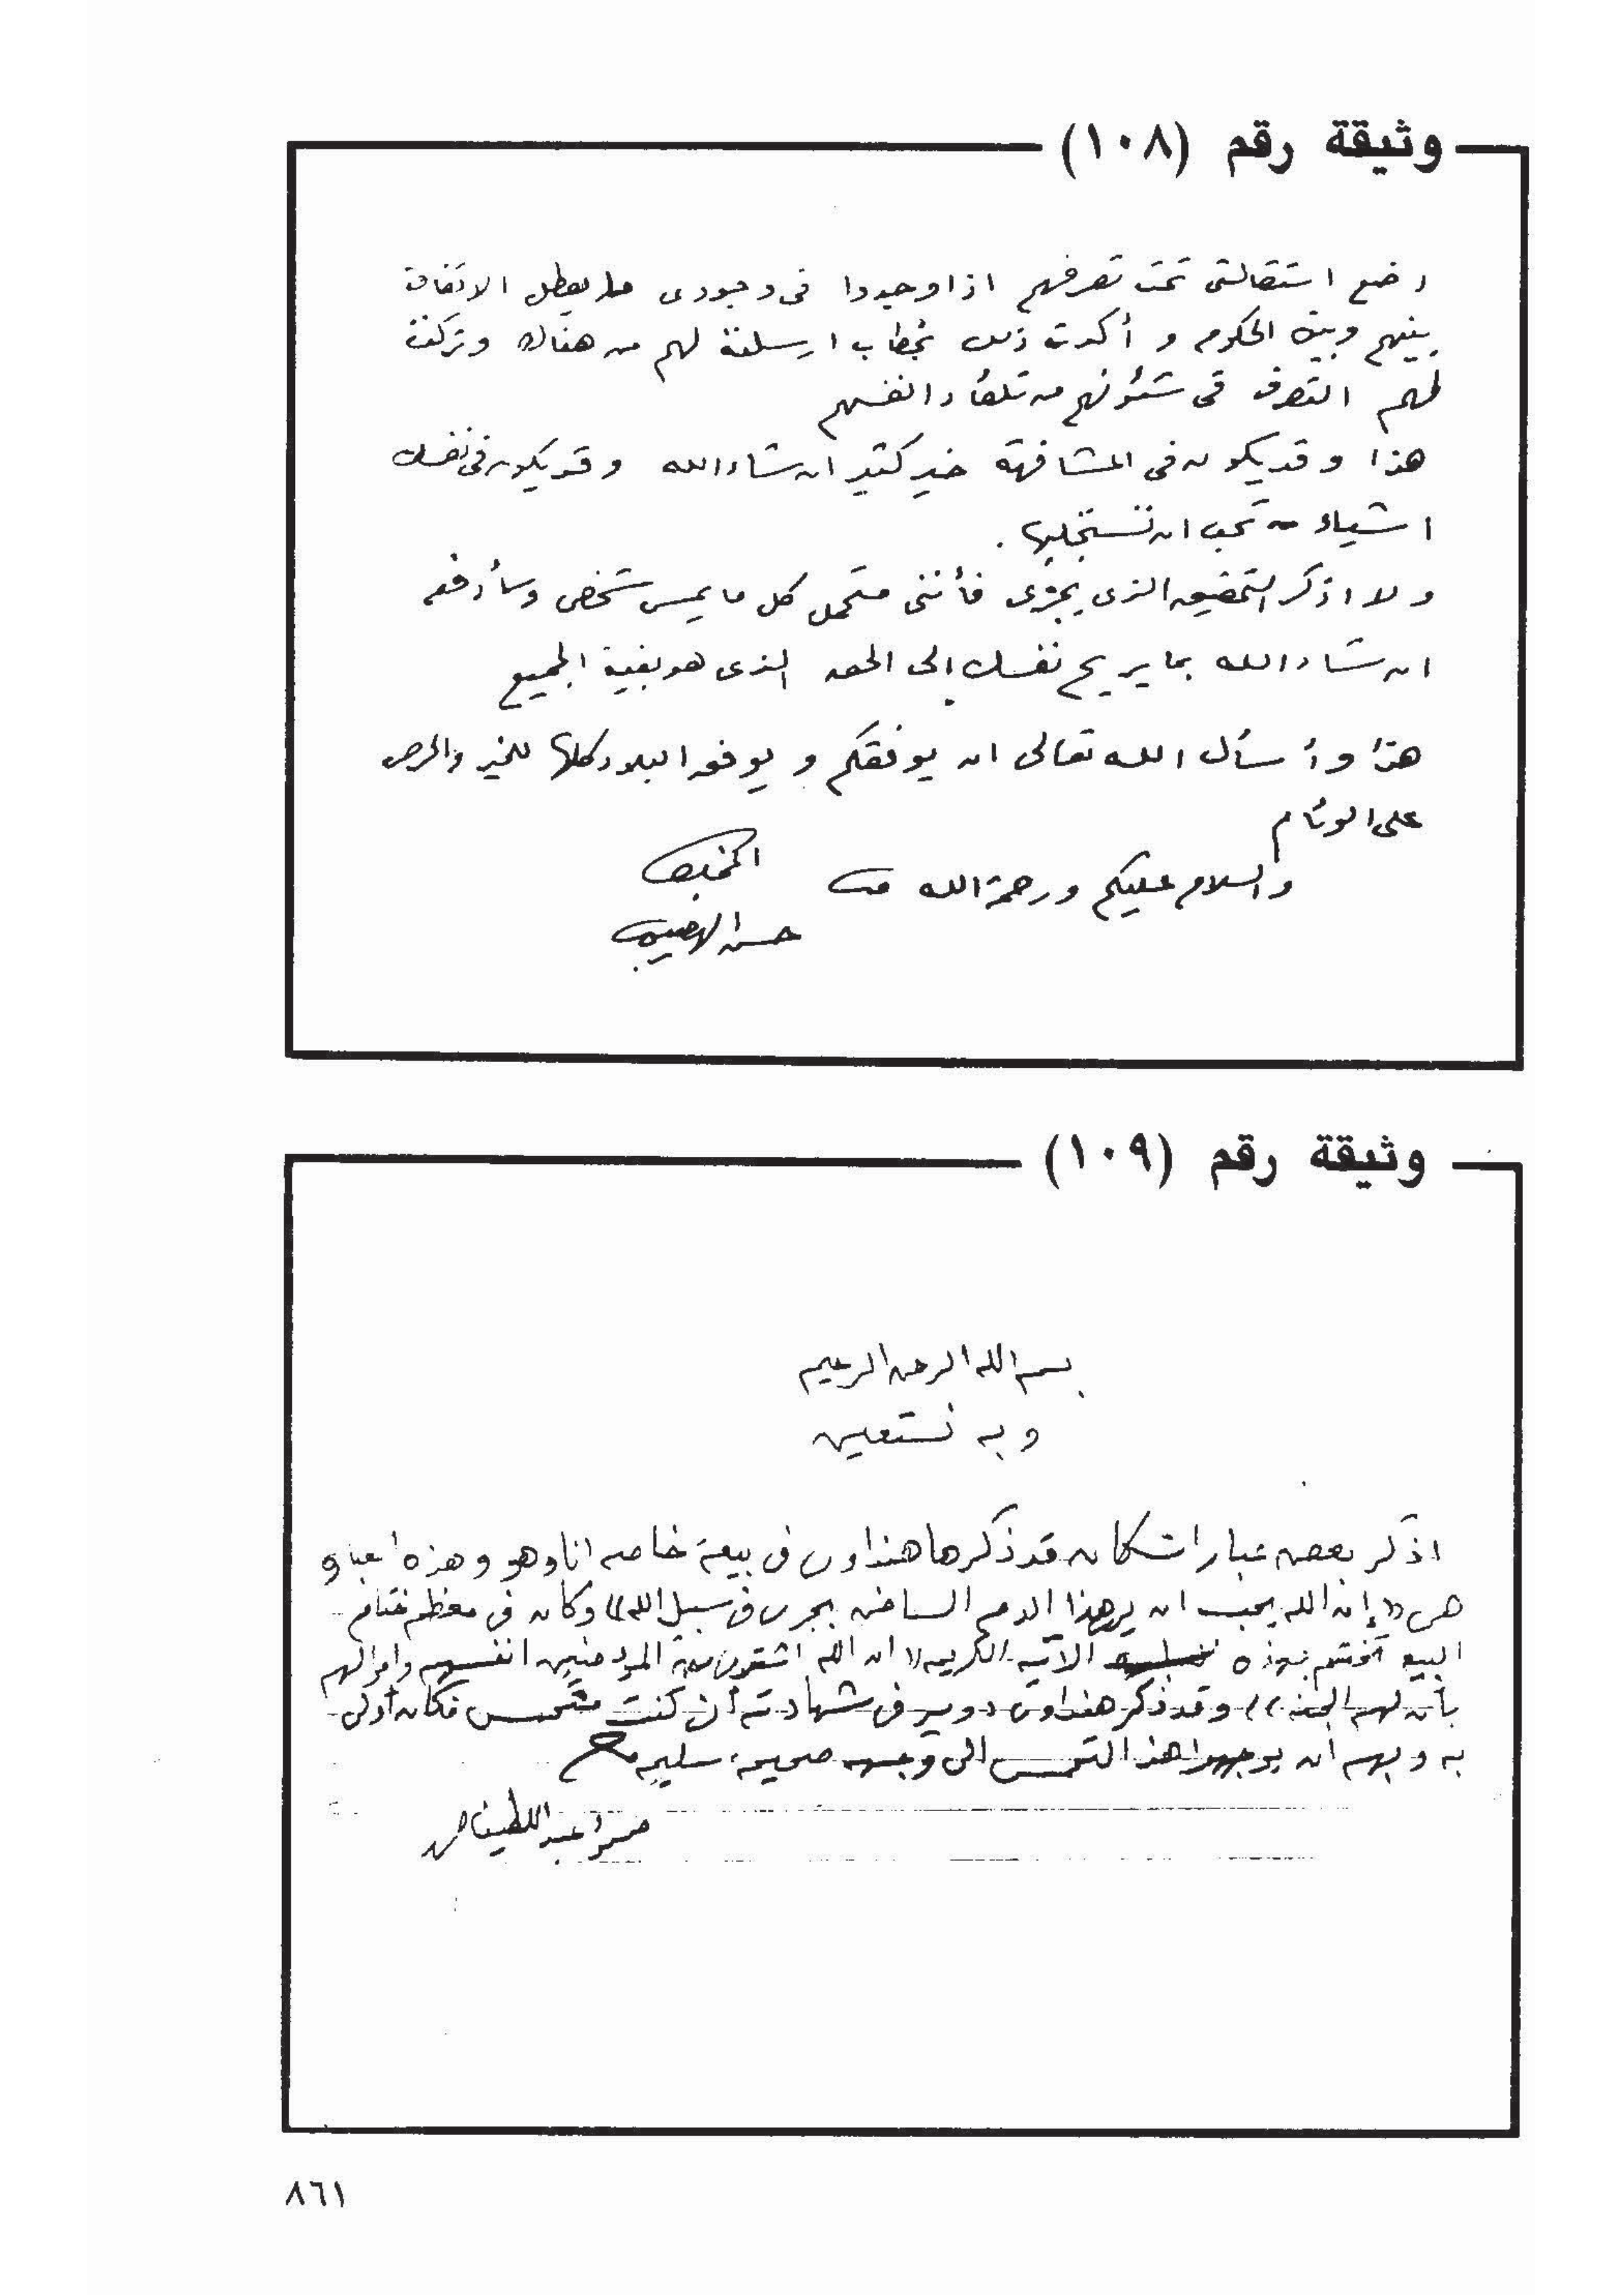 وثيقة رقم (١٠٨)
اضع استقالتى تحت تصرفهم اذا وجدوا فى وجودى ما يعطل الاتفاق
بينهم وبين الحكومه و أكدت ذلك بخطاب ارسلته لهم من هناك وتركت
لهم التصرف فى شئونهم من تلقاء انفسهم
هذا وقد يكون فى المشافهة خير كثير ان شاء الله وقد يكون فى نفسك
اشياء تحب ان تستجليها .
ولا اذكر التحقيق الذى يجرى فأننى متحمل كل ما يمس شخصى وسأدفعه
ان شاء الله بما يريح نفسك إلى الحق الذى هو بغية الجميع
هذا وأسأل الله تعالى ان يوفقكم و يوفق البلاد كلها للخير والحرص
على الوئام
والسلام عليكم ورحمة الله
المخلص
حسن الهضيبى
وثيقة رقم (١٠٩)
بسم الله الرحمن الرحيم
و به نستعين
اذكر بعض عبارات كان قد ذكرها هنداوى فى بيعة خاصه انا وهو وهذه
هى «إن الله يحب ان يرى هذا الدم الساخن يجرى فى سبيل الله» وكان فى معظم ختام
البيع تختتم بهذه الآيه الكريمه «ان الله اشترى من المؤمنين انفسهم واموالهم
بأن لهم الجنه» وقد ذكر هنداوى دوير فى شهادته أنى كنت متحمس فكان أولى
به وبهم ان يوجهوا هذا التحمس الى وجهه صحيحه سليمه
٨٦١